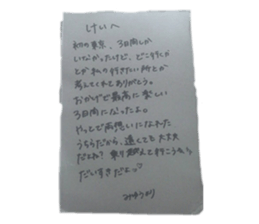 けいへ
初の東京、3日間しか
いなかったけど、どこ行くか
とか私の行きたい所とか
考えてくれてありがとう。
おかげで最高に楽しい
3日間になったよ。
やっとで両想いになれた
うちらだから、遠くても大丈夫
だよね？乗り越えて行こうね。
だいすきだよ♡
みゆうより